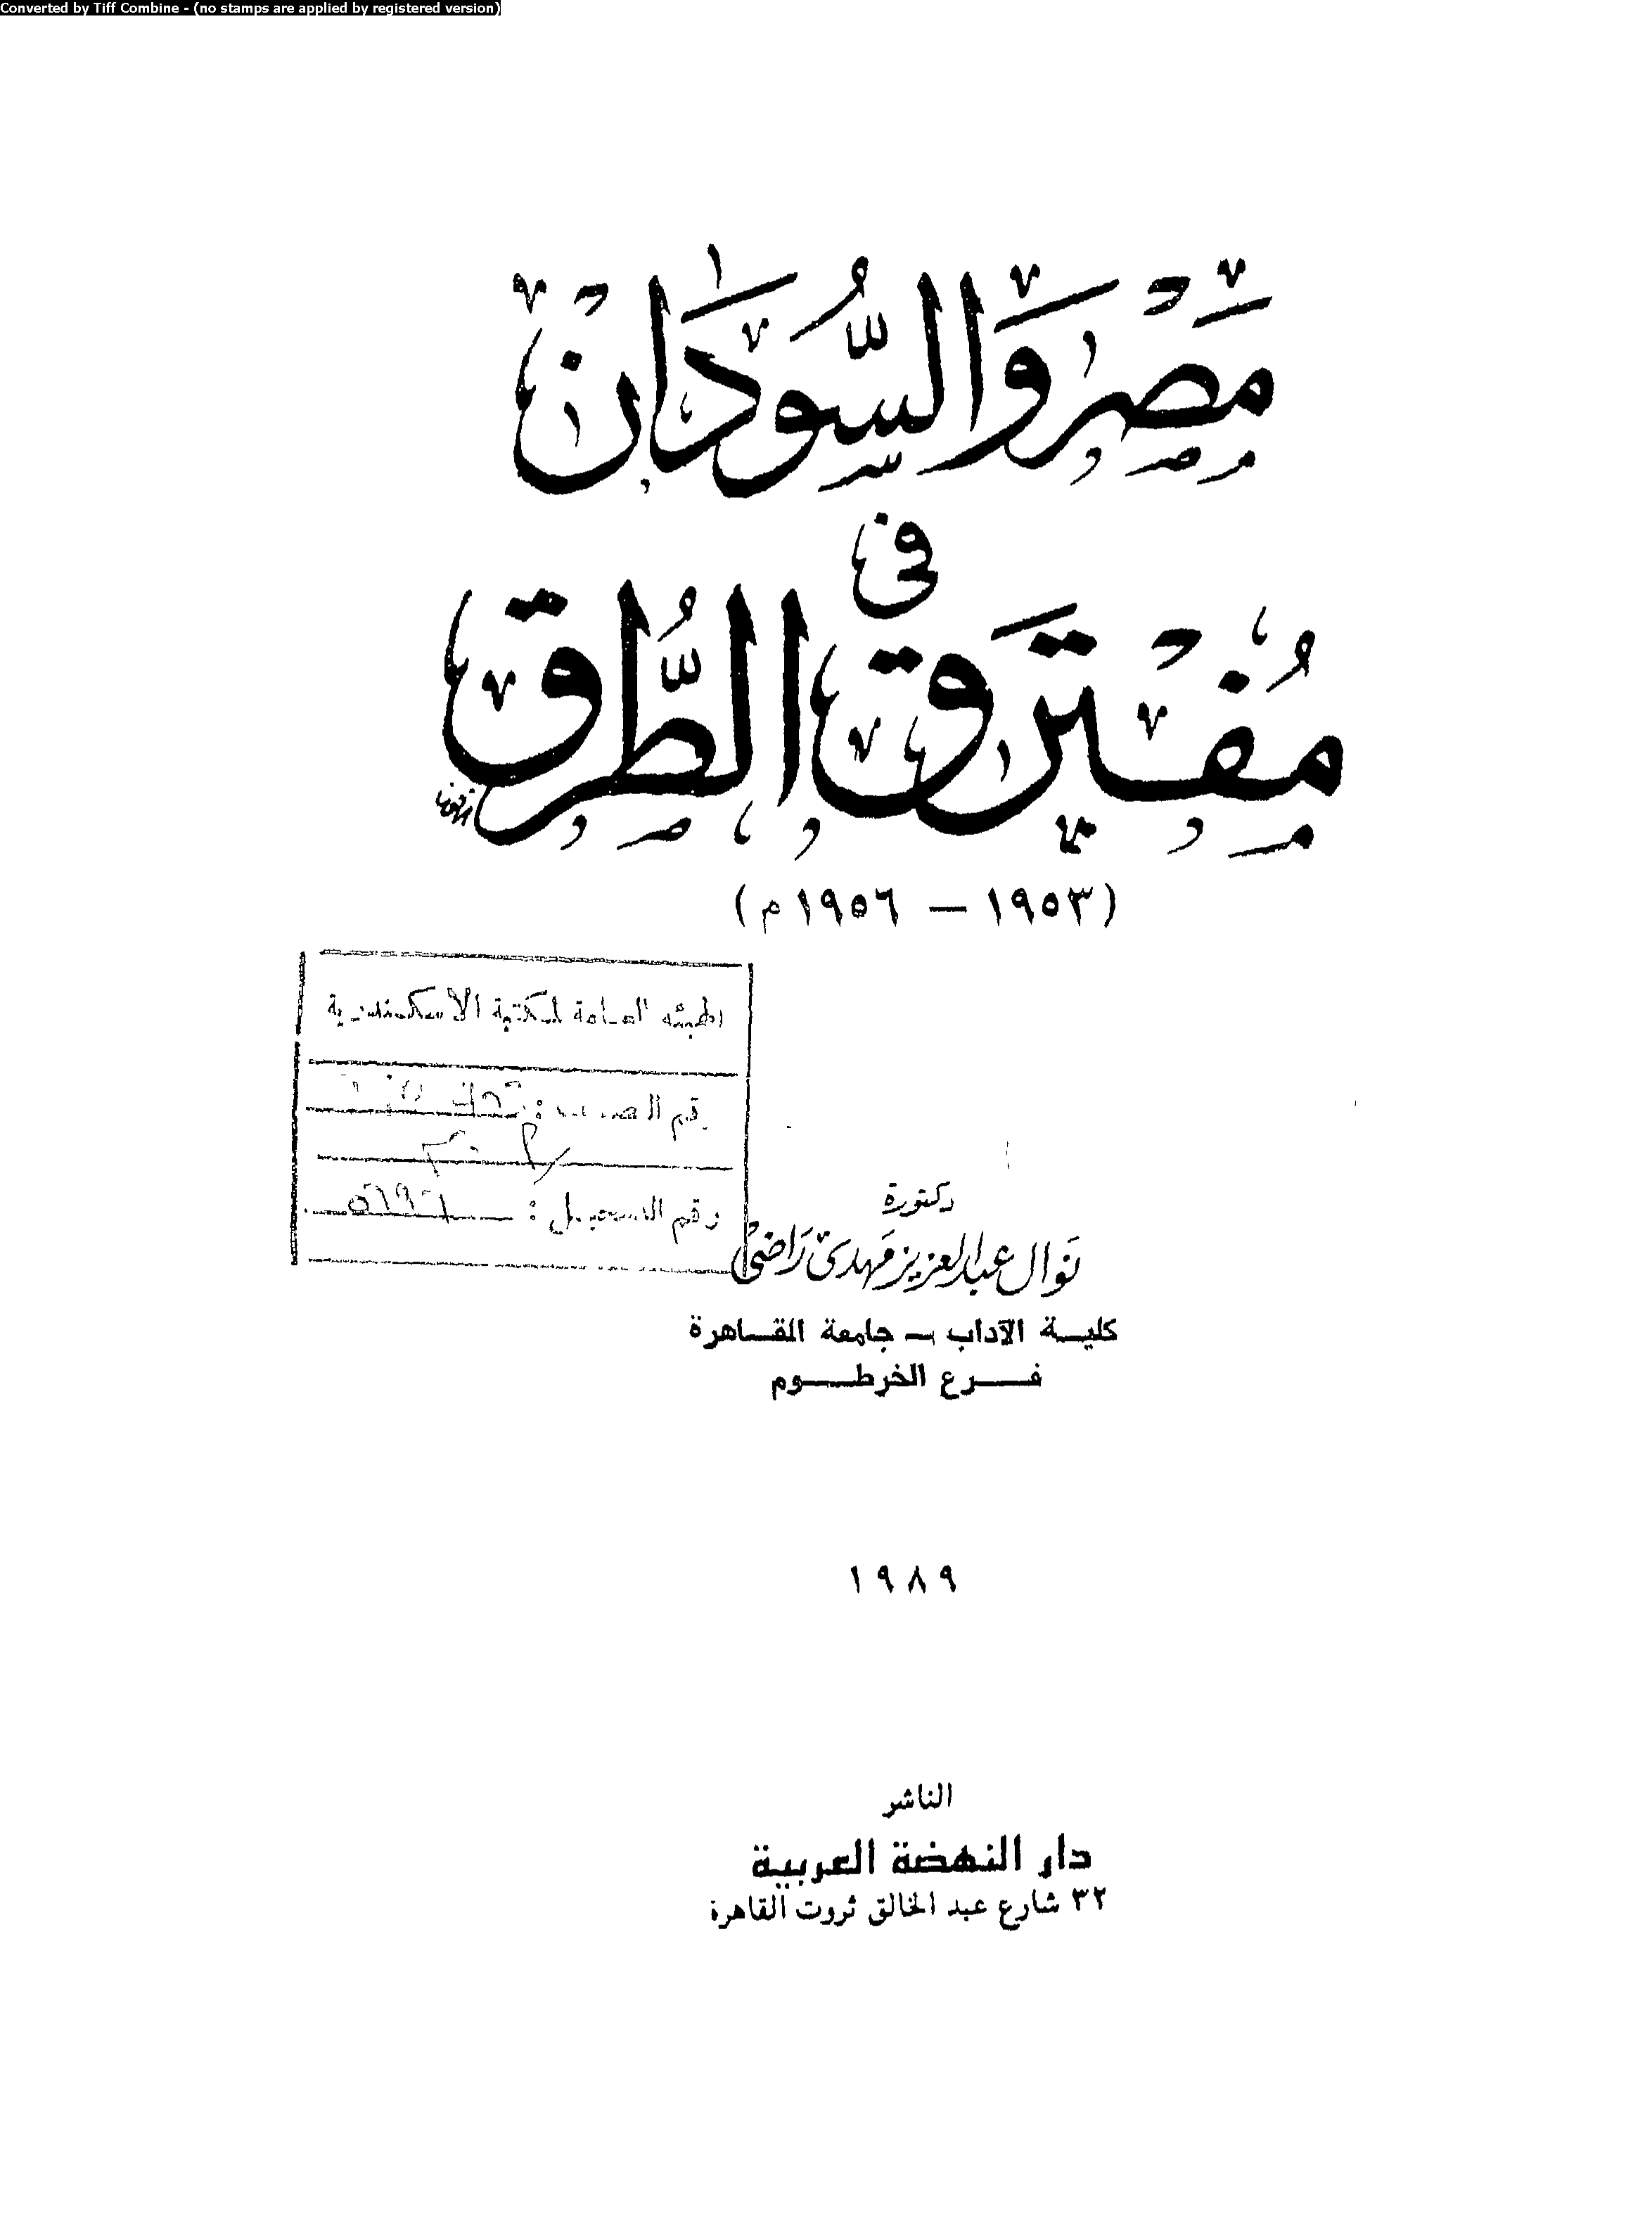 Converted by Tiff Combine - (no stamps are applied by registered version)
مصر والسودان
في
مفترق الطرق
(١٩٥٣ – ١٩٥٦ م)
الهيئة العامة لمكتبة الاسكندرية
رقم
رقم التسجيل :
دكتورة
نوال عبدالعزيز مهدى راضى
كلية الآداب – جامعة القاهرة
فرع الخرطوم
١٩٨٩
الناشر
دار النهضة العربية
٣٢ شارع عبد الخالق ثروت القاهرة